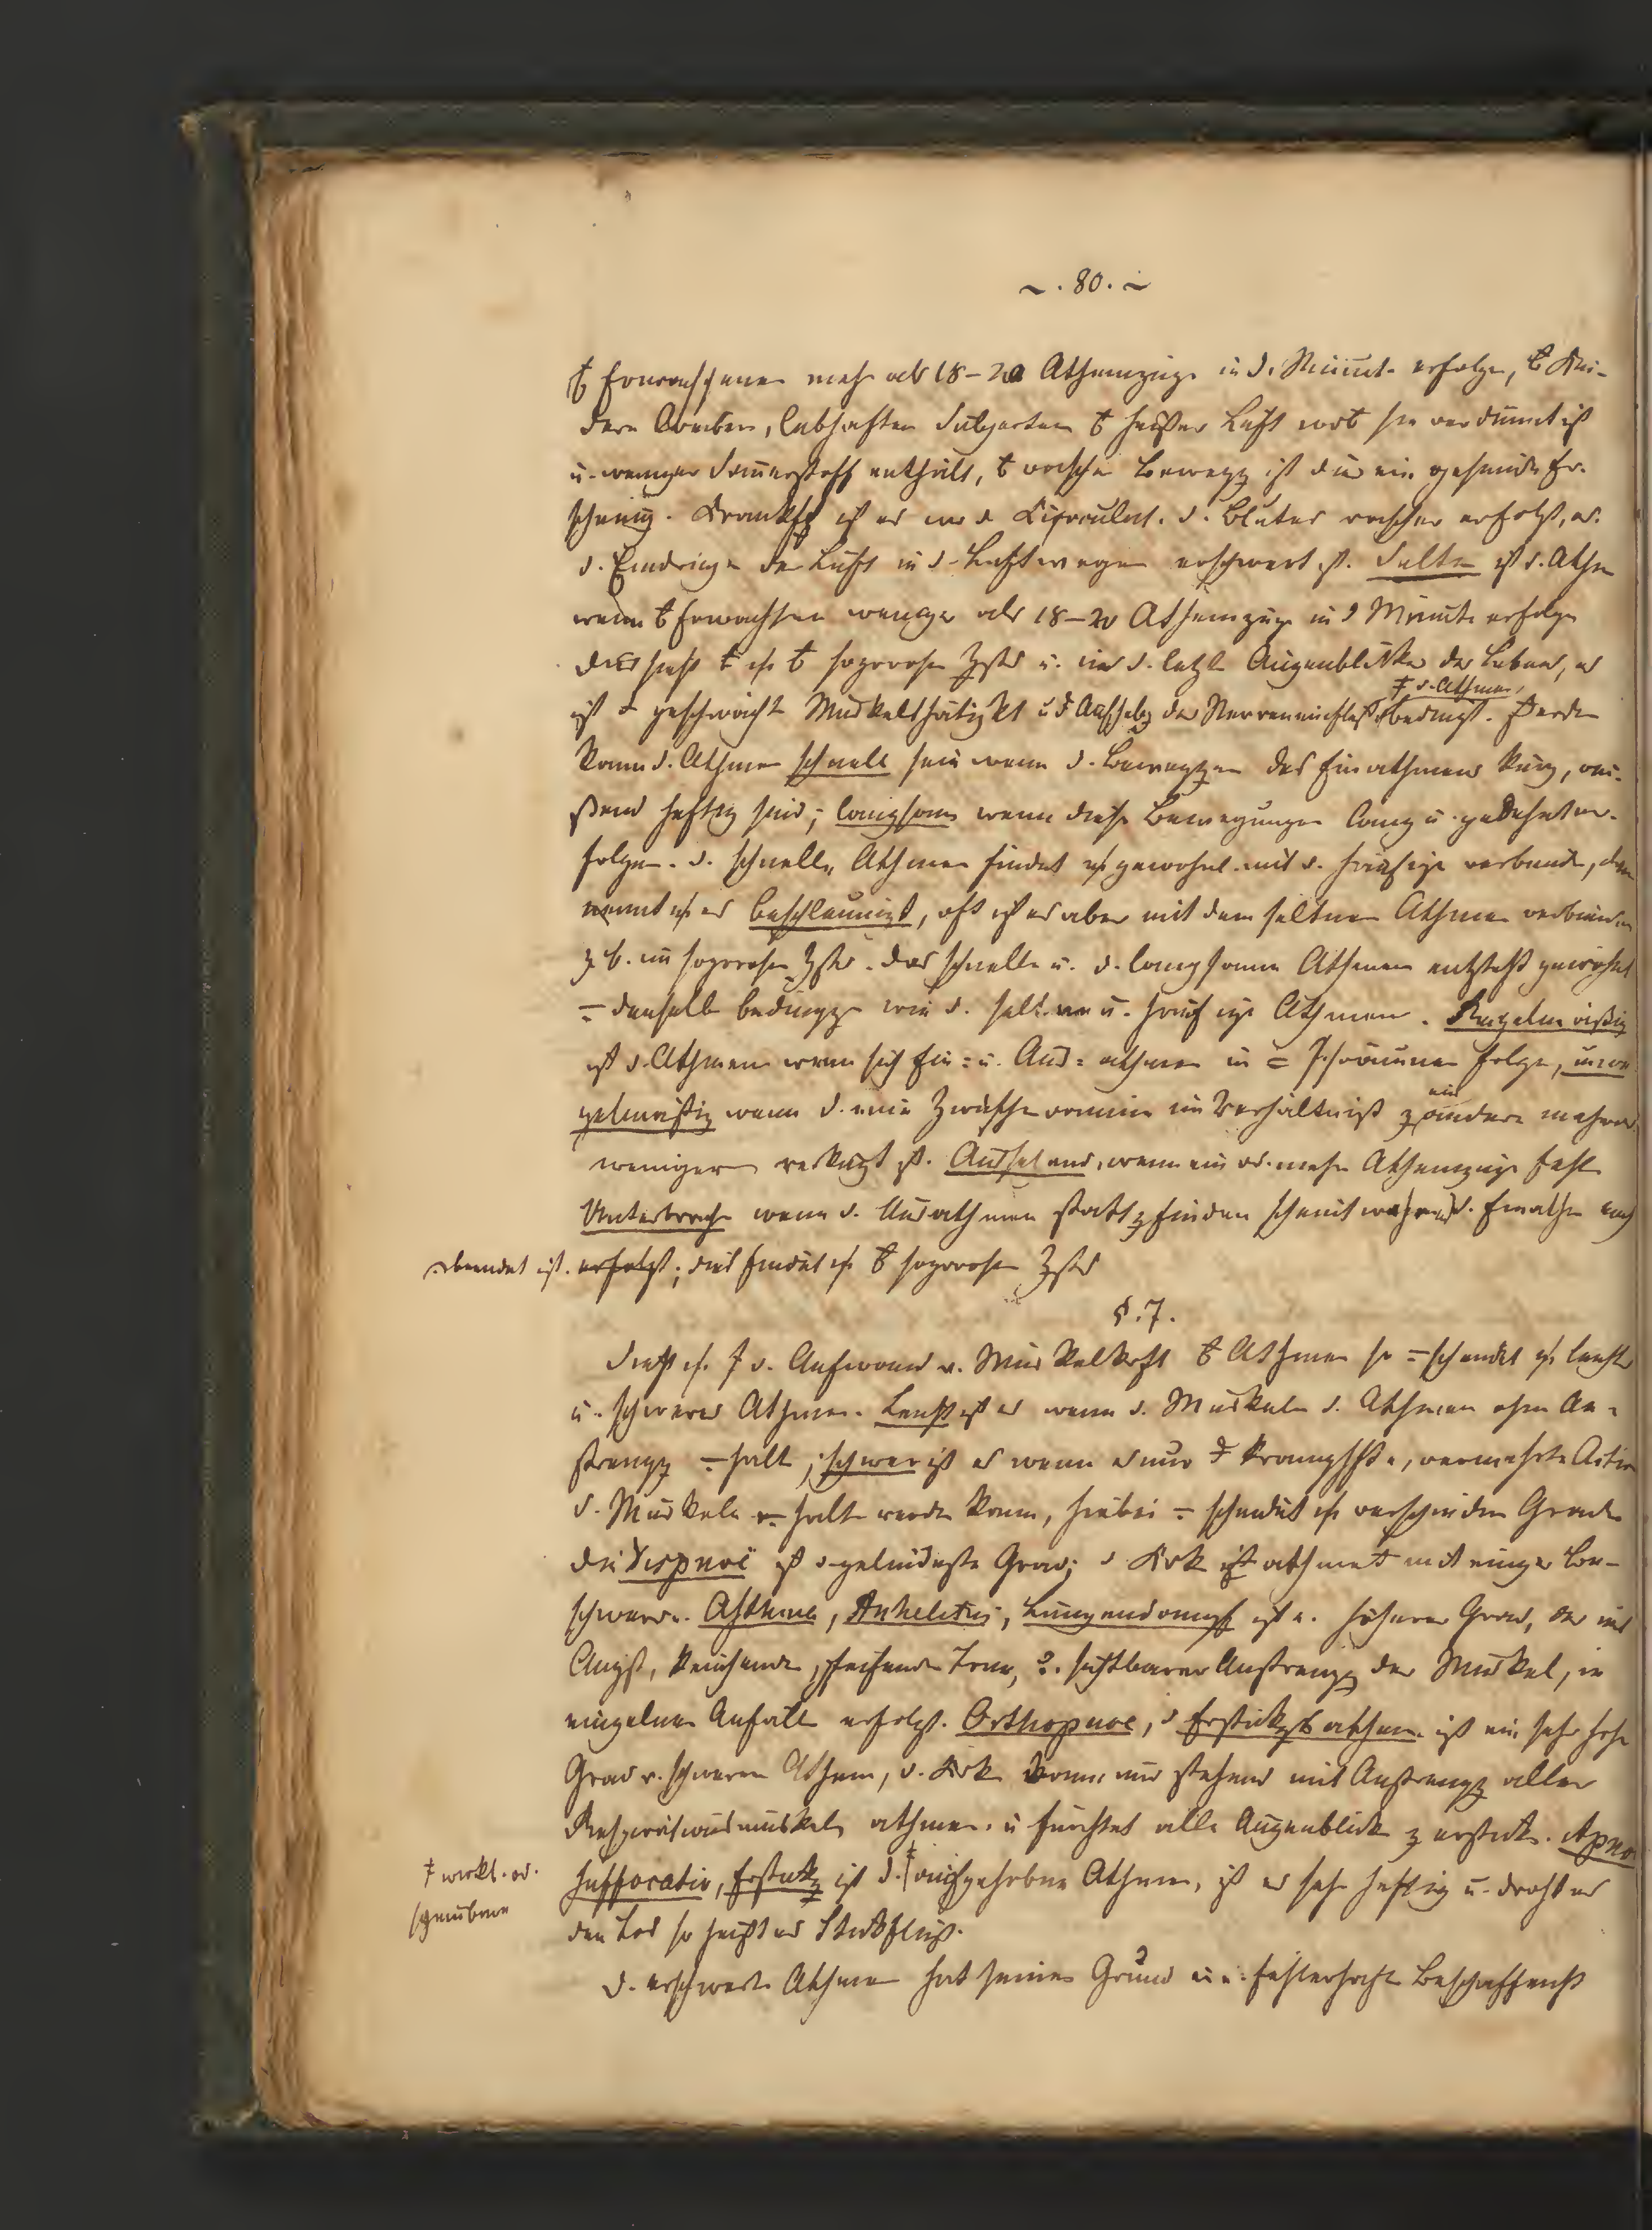 ~ . 80. ~
Erwachsenen mehr als 18-20 Athemzüge in d. Minute erfolgen, Kin-
dern Weibern, lebhaften Subjecten heißer Luft wo sie verdünnt ist
u. weniger Sauerstoff enthält, rascher Bewegg ist dies ein gesunde Er-
scheinung. Krankhft ist es wo d. Circulat. d. Blutes rascher erfolgt, od.
d. Eindringen der Luft in d. Luftwegen erschwert ist. Selten ist d. Athm
wenn Erwachsen weniger als 18-20 Athemzüge in d Minute erfolgen
dies soporosen Zstd u. in d. letzten Augenblicken des Lebens, es
ist geschwächt Muskelthätigkt u Aufhebg des Nerveneinflußes bedingt. Ferner
d. Athmen
kann d. Athmen schnell sein wenn d. Beweggen des Einathmens kurz, rei-
ßend heftig sind; langsam wenn diese Bewegungen lang u. gedehnt er-
folgen. d. schnelle Athmen findet gewöhnl. mit d. häufige verbunden, dann
nennt es beschleunigt, oft ist es aber mit dem seltnen Athmen verbunden
z. b. im soporosen Zstd. das schnelle u. d. langsame Athmen entsteht gewöhnl
= denselb bedingge wie d. seltene u. häufige Athmen. Regelmäßig
ist d. Athmen wenn sich Ein= u. Aus= athmen in = Zräumen folgen, unre
gelmäßig wenn d. eine Zwischenraum im Verhältniß z andern mehr od
weniger verkürzt ist. Aussetzend, wenn ein od. mehr Athemzüge fehlen
Unterbroch wenn d. Ausathmen statt z finden scheint während d. Einathm noch
beendet ist. erfolgt; dies findet soporosen Zstd
§. 7.
Sieht d. Aufwand v. Muskelkrft Athmen so = scheidet leichtes
u. schweres Athmen. Leicht ist es wenn d. Muskeln d. Athmen ohne An=
strengg = halt; schwer ist es wenn es nur krampfhfte, vermehrte Action
d. Muskeln = halten werden kann, hiebei = scheidet verschieden Grade
die Dispnoe ist d gelindeste Grad; d Krk athmet mit einiger Be-
schwerde. Asthma, Anhelitus, Lungendampf ist e. höherer Grad, der mit
Angst, keuchende, pfeifende Töne, sichtbarer Anstrengg der Muskel, in
einzelnen Anfällen erfolgt. Orthopnoe, d Erstickgsathmen ist ein sehr hoher
Grad v. schweren Athem, d. Krk kann nur stehend mit Anstrengg aller
Respirationsmuskeln athmen u fürchtet alle Augenblick z ersticken. Apno
wirkl. od.
scheinbare
Suffocatio, Erstickg ist d. aufgehobene Athmen, ist es sehr heftig u. droht es
den Tod so heißt es Stickfluß.
d. erschwerte Athmen hat seinen Grund in e. fehlerhafte Beschaffenht